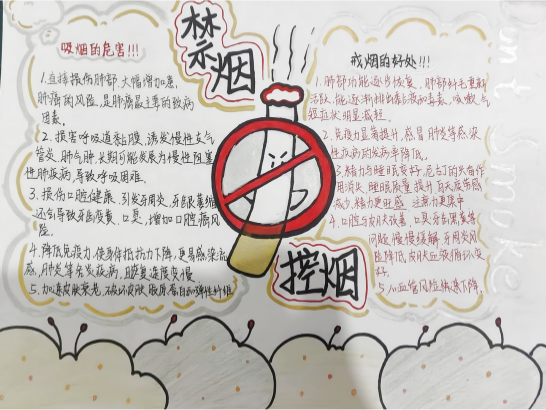 禁烟
吸烟的危害!!!
1.直接损伤肺部,大幅增加患
肺癌的风险,是肺癌最主要的致病
因素。
2.损害呼吸道黏膜,诱发慢性支气
管炎、肺气肿,长期可能发展为慢性阻塞
性肺疾病,导致呼吸困难。
3.损伤口腔健康,引发牙周炎、牙龈萎缩
还会导致牙齿发黄、口臭,增加口腔癌风
险。
4.降低免疫力,使身体抵抗力下降,更易感染流
感、肺炎等
5.加速皮肤衰老,破坏皮肤胶原蛋白和弹性纤维
戒烟的好处!!!
1.肺部功能逐步恢复,肺部纤毛重新
活跃,能逐渐排出
短症状明显减轻。
2.免疫力显著提升,感冒、肺炎等感染
性疾病的发病率降低。
3.精力与睡眠变好,
用消失,睡眠质量提升,白天疲劳感
减少,精力更旺盛,注意力更集中
4.口腔与皮肤改善,口臭、牙齿黑黄等
问题慢慢缓解,牙周炎风
险降低,皮肤血液循环变
好。
5.心血管风险 下降。
控烟
smoke